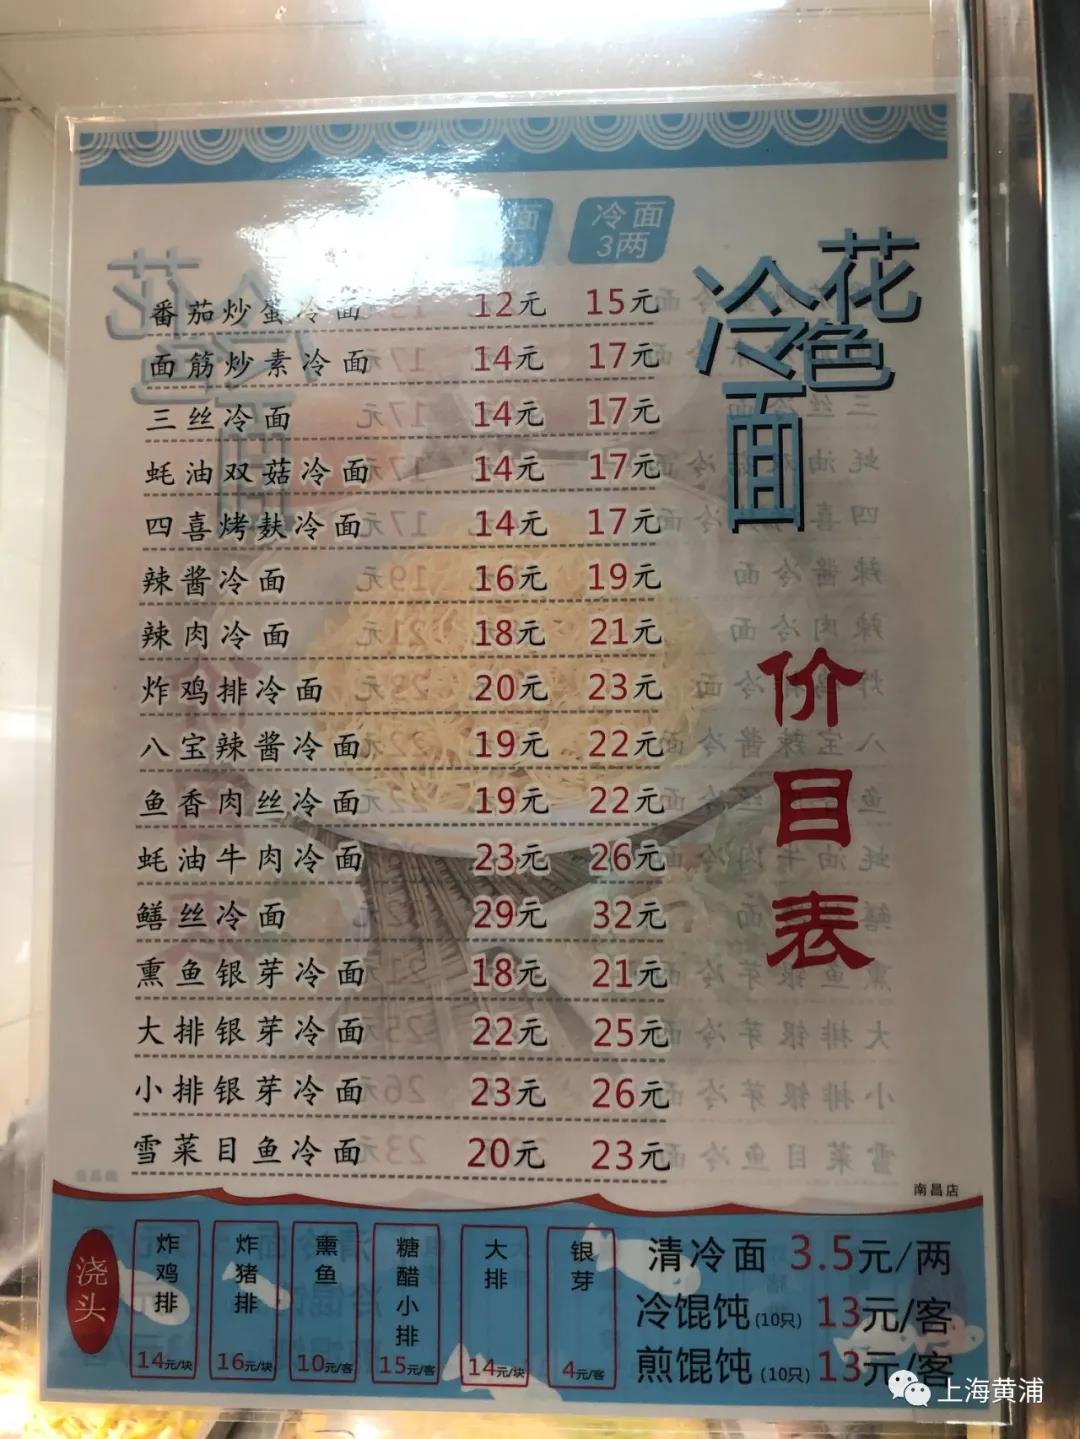 花色
冷面
价目表
冷面
3两
番茄炒蛋冷面 12元 15元
面筋炒素冷面 14元 17元
三丝冷面 14元 17元
蚝油双菇冷面 14元 17元
四喜烤麸冷面 14元 17元
辣酱冷面 16元 19元
辣肉冷面 18元 21元
炸鸡排冷面 20元 23元
八宝辣酱冷面 19元 22元
鱼香肉丝冷面 19元 22元
蚝油牛肉冷面 23元 26元
鳝丝冷面 29元 32元
熏鱼银芽冷面 18元 21元
大排银芽冷面 22元 25元
小排银芽冷面 23元 26元
雪菜目鱼冷面 20元 23元
南昌店
浇头
炸鸡排 14元/块
炸猪排 16元/块
熏鱼 10元/客
糖醋小排 15元/客
大排 14元/块
银芽 4元/客
清冷面 3.5元/两
冷馄饨(10只) 13元/客
煎馄饨(10只) 13元/客
上海黄浦